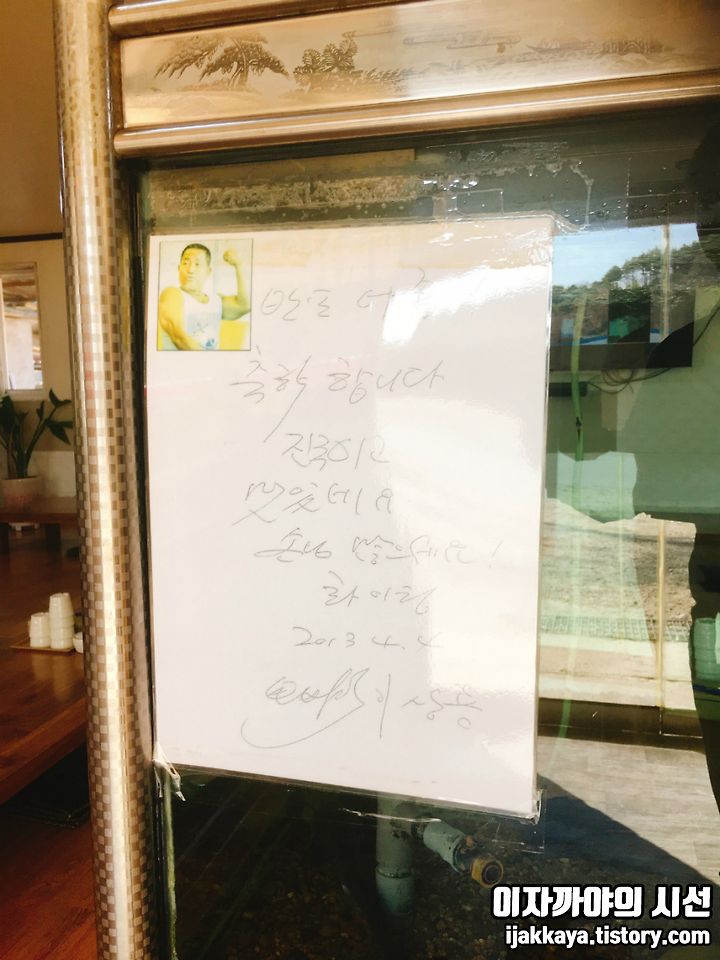 축하 합니다
진국이고
맛있네요
손님 많으세요!
화이팅
2013 4. 4
이상용
이자까야의 시선
ijakkaya.tistory.com